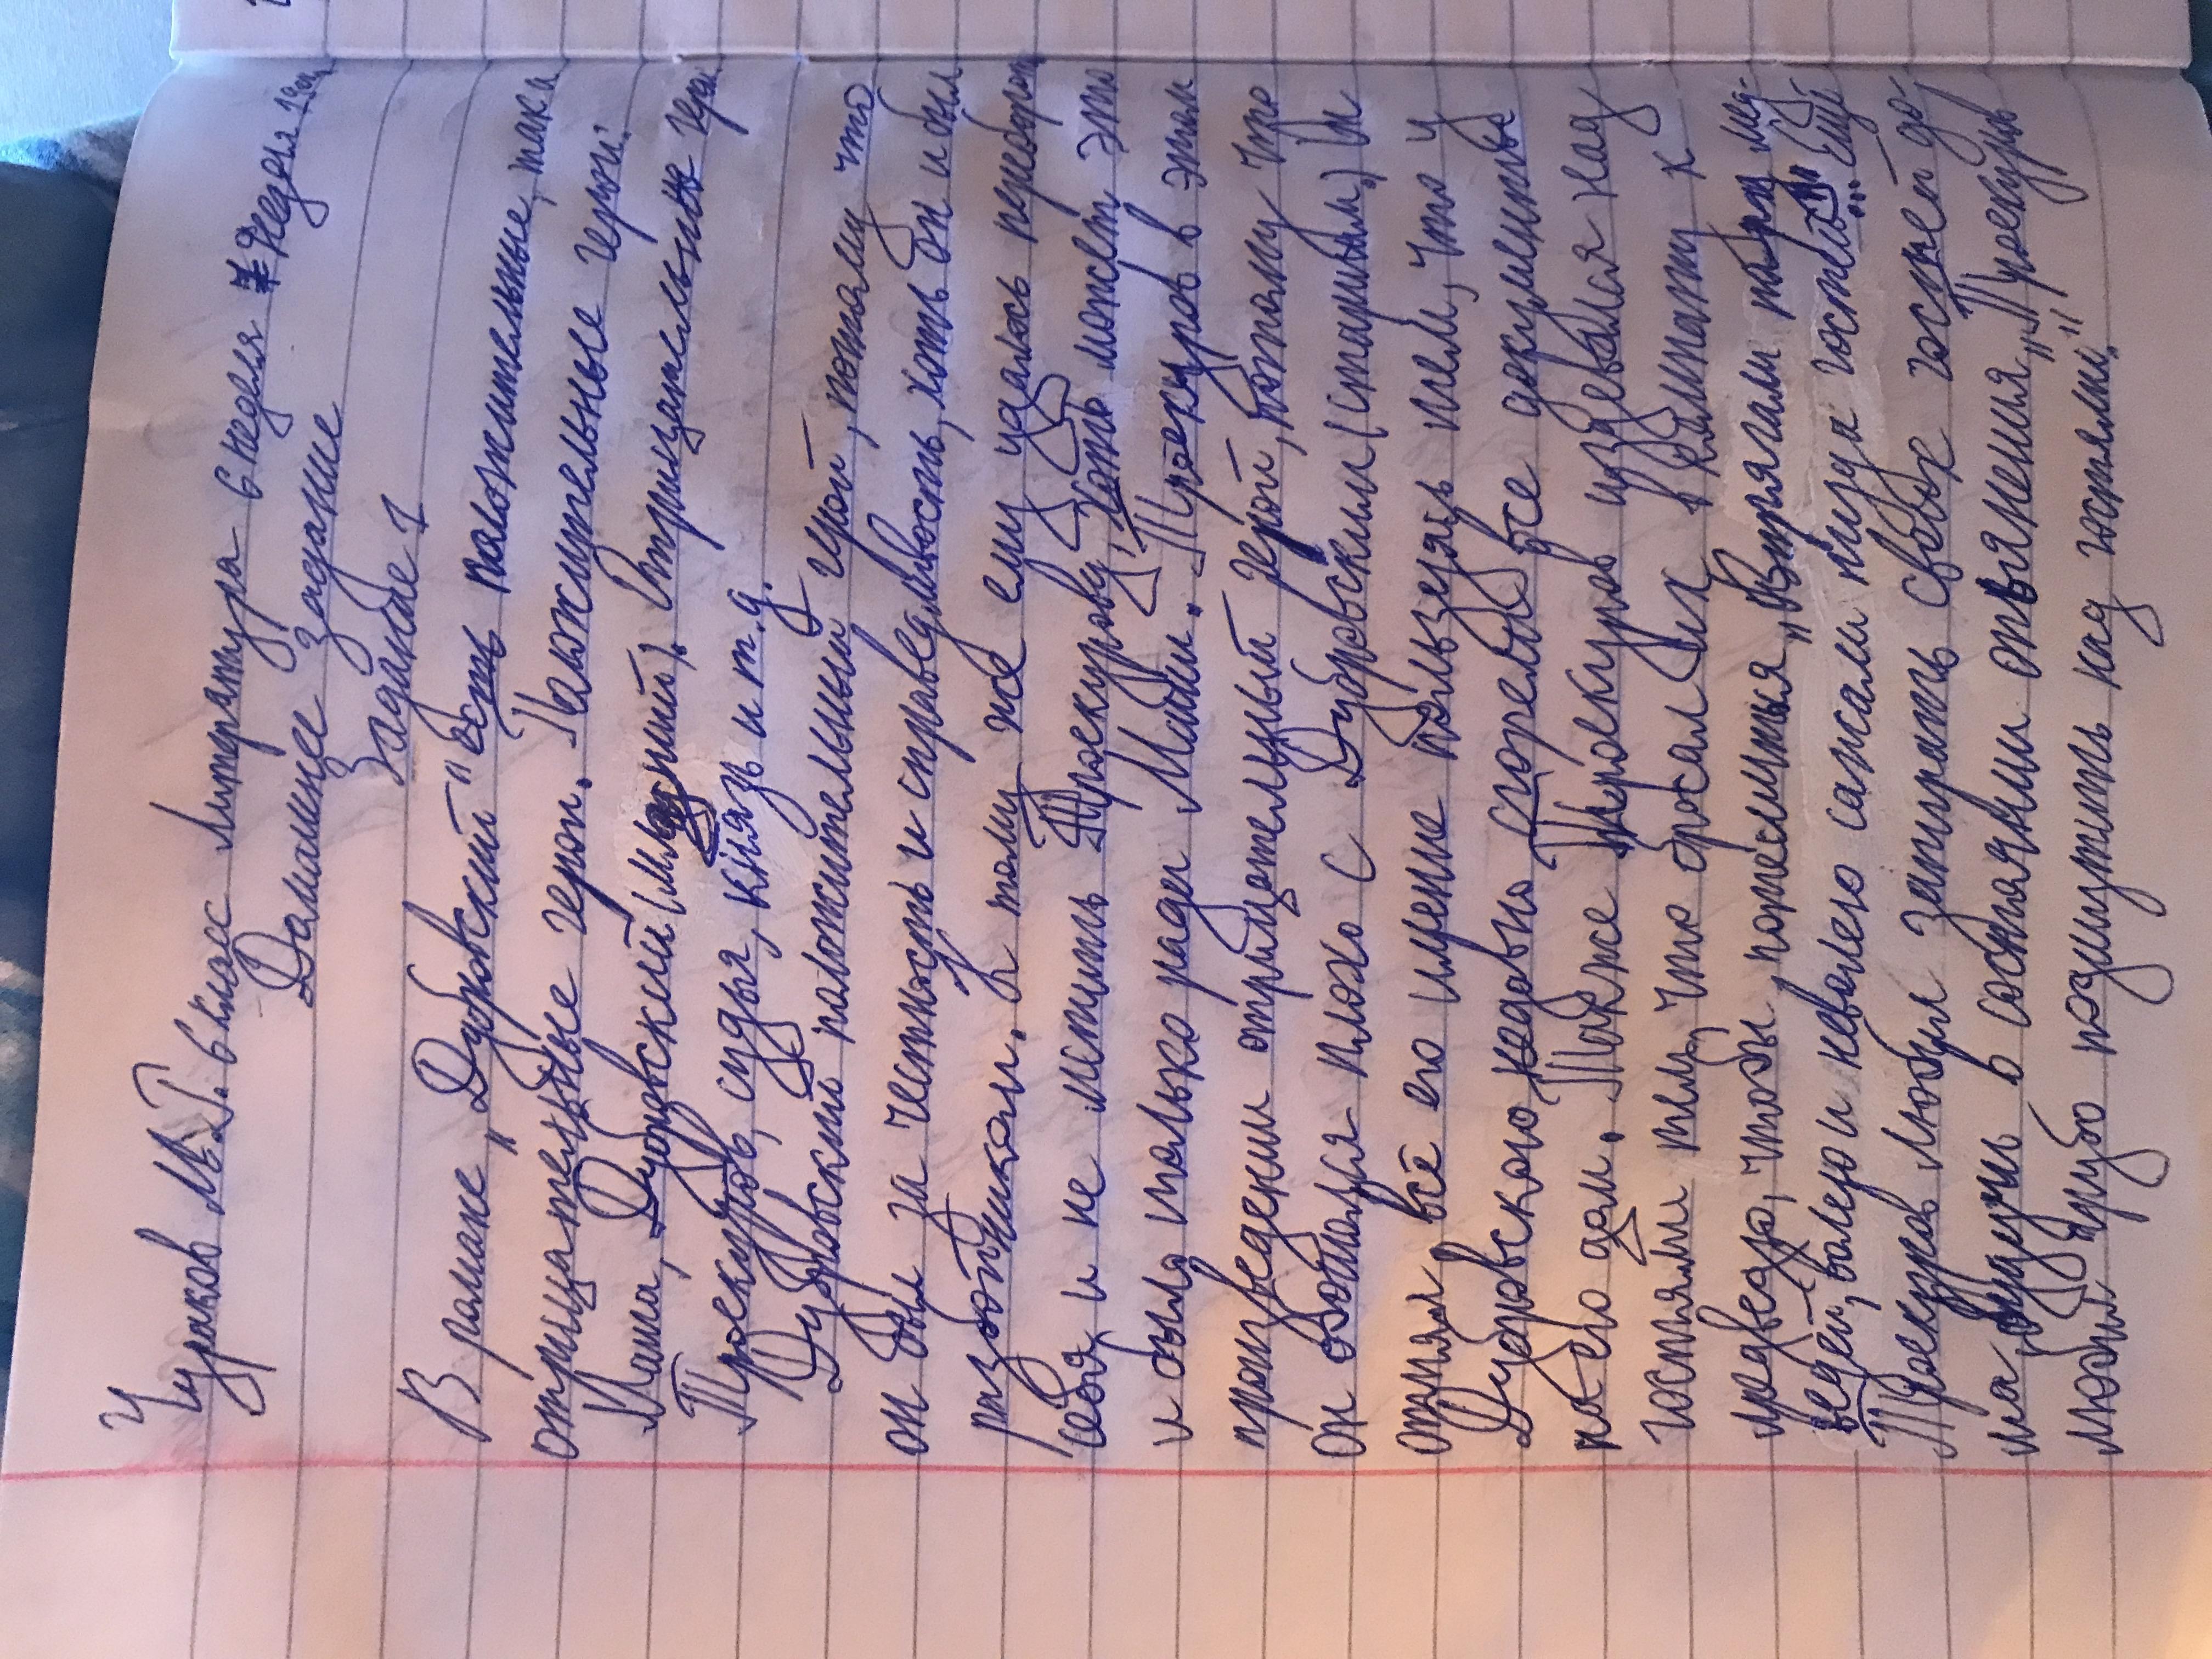 Чураков М.Т. 6 класс Литература 6 неделя
Домашнее задание
Задание 1
В романе „Дубровский" есть положительные, так и
отрицательные герои. Положительные герои:
Маша, Дубровский (младший). Отрицательные геро
Троекуров, судья, князь и т.д.
Дубровский положительный герой, потому что
он был за честность и справедливость, хоть он и был
разбойником. К тому же ему удалось перебороть
себя и не мстить Троекурову, хотя может это
и было только ради Маши. Троекуров в этом
произведении отрицательный герой, потому что
он обошелся плохо с Дубровским (старшим) Он
отнял всё его имение пользуясь тем, что у
Дубровского недавно сгорели все документы
и его дом. Также Троекуров издевался над
гостями тем, что бросал их в комнату к
медведю, чтобы потешиться, „Впрягали табун мед-
ведей, волею и неволею сажали туда гостей..." Ещё
Троекуров любил запирать своих гостей до-
ма, будучи в состоянии опьянения, „Троекуров
любил грубо подшутить над гостями."